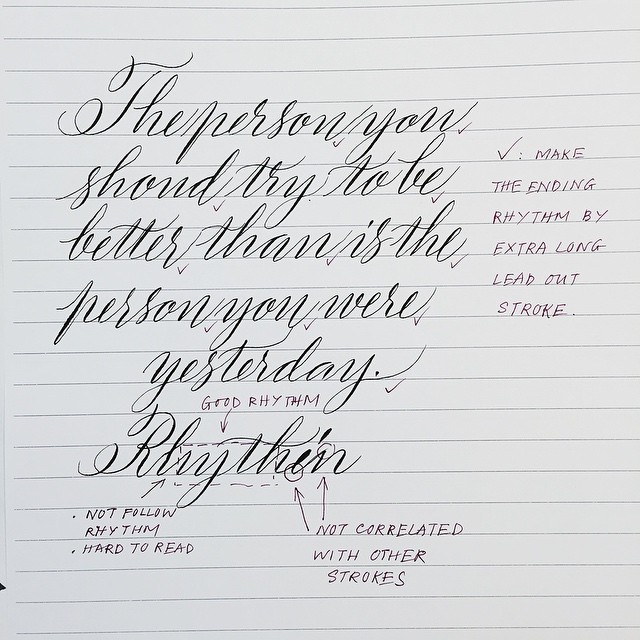 The person you
shoud try to be
better than is the
person you were
yesterday.
✓: MAKE
THE ENDING
RHYTHM BY
EXTRA LONG
LEAD OUT
STROKE.
GOOD RHYTHM
Rhythm
· NOT FOLLOW
RHYTHM
· HARD TO READ
NOT CORRELATED
WITH OTHER
STROKES